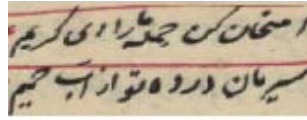 امتحان کن جمله مارا ای کریم
سیرمان در ده تو از آب حمیم